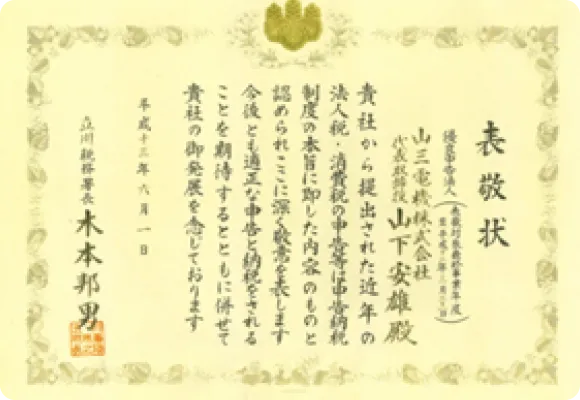 表敬状
優良申告法人
山三電機株式会社
代表取締役 山下安雄殿
貴社から提出された近年の
法人税・消費税の申告等は申告納税
制度の本旨に即した内容のものと
認められここに深く敬意を表します
今後とも適正な申告と納税をされる
ことを期待するとともに併せて
貴社の御発展を念じております
平成十三年六月一日
立川税務署長 木本邦男